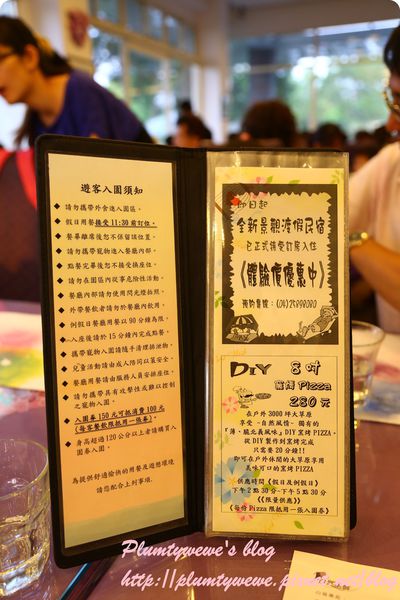 遊客入園須知
◆ 請勿攜帶外食進入園區。
◆ 假日用餐接受11:30前訂位。
◆ 餐畢離席後恕不保留該位置。
◆ 請勿攜帶寵物進入餐廳內部。
◆ 點餐完畢後恕不接受換座位。
◆ 請勿在園區內從事危險性活動。
◆ 餐廳內部請勿使用閃光燈拍照。
◆ 外帶餐飲者請勿於餐廳內飲用。
◆ 例假日餐廳用餐以90分鐘為限。
◆ 入座後請於15分鐘內完成點餐。
◆ 攜帶寵物入園請隨手清理排泄物。
◆ 兒童活動請由成人陪同以策安全。
◆ 餐廳用餐請由服務人員安排座位。
◆ 請勿攜帶具有攻擊性或難以控制
之寵物入園。
◆ 入園券150元可抵消費100元
(每客餐飲限抵用一張券)。
◆ 身高超過120公分以上者請購買入
園券入園。
為提供舒適愉快的用餐及遊憩環境
請您配合上列事項。
即日起
全新景觀渡假民宿
已正式接受訂房入住
《體驗價優惠中》
預約專線:
DIY 8吋
窯烤Pizza
280元
在戶外3000坪大草原
享受-自然風情-獨有的
「薄、脆義式風味」DIY窯烤PIZZA,
從DIY製作到窯烤完成
只需要20分鐘!!
即可在戶外休閒的大草原享用
美味可口的窯烤PIZZA
供應時間《假日及例假日》
下午2點30分-下午5點30分
《《限量供應》》
《每份Pizza限抵用一張入園券》
Plumtywewe's blog
http://plumtywewe.pixnet.net/blog